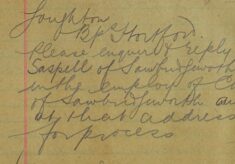 Loughton
Bps Stortford.
Please enquire & reply
Saspell of Sawbridgeworth
in the employ of
of Sawbridgeworth
at that address
for process